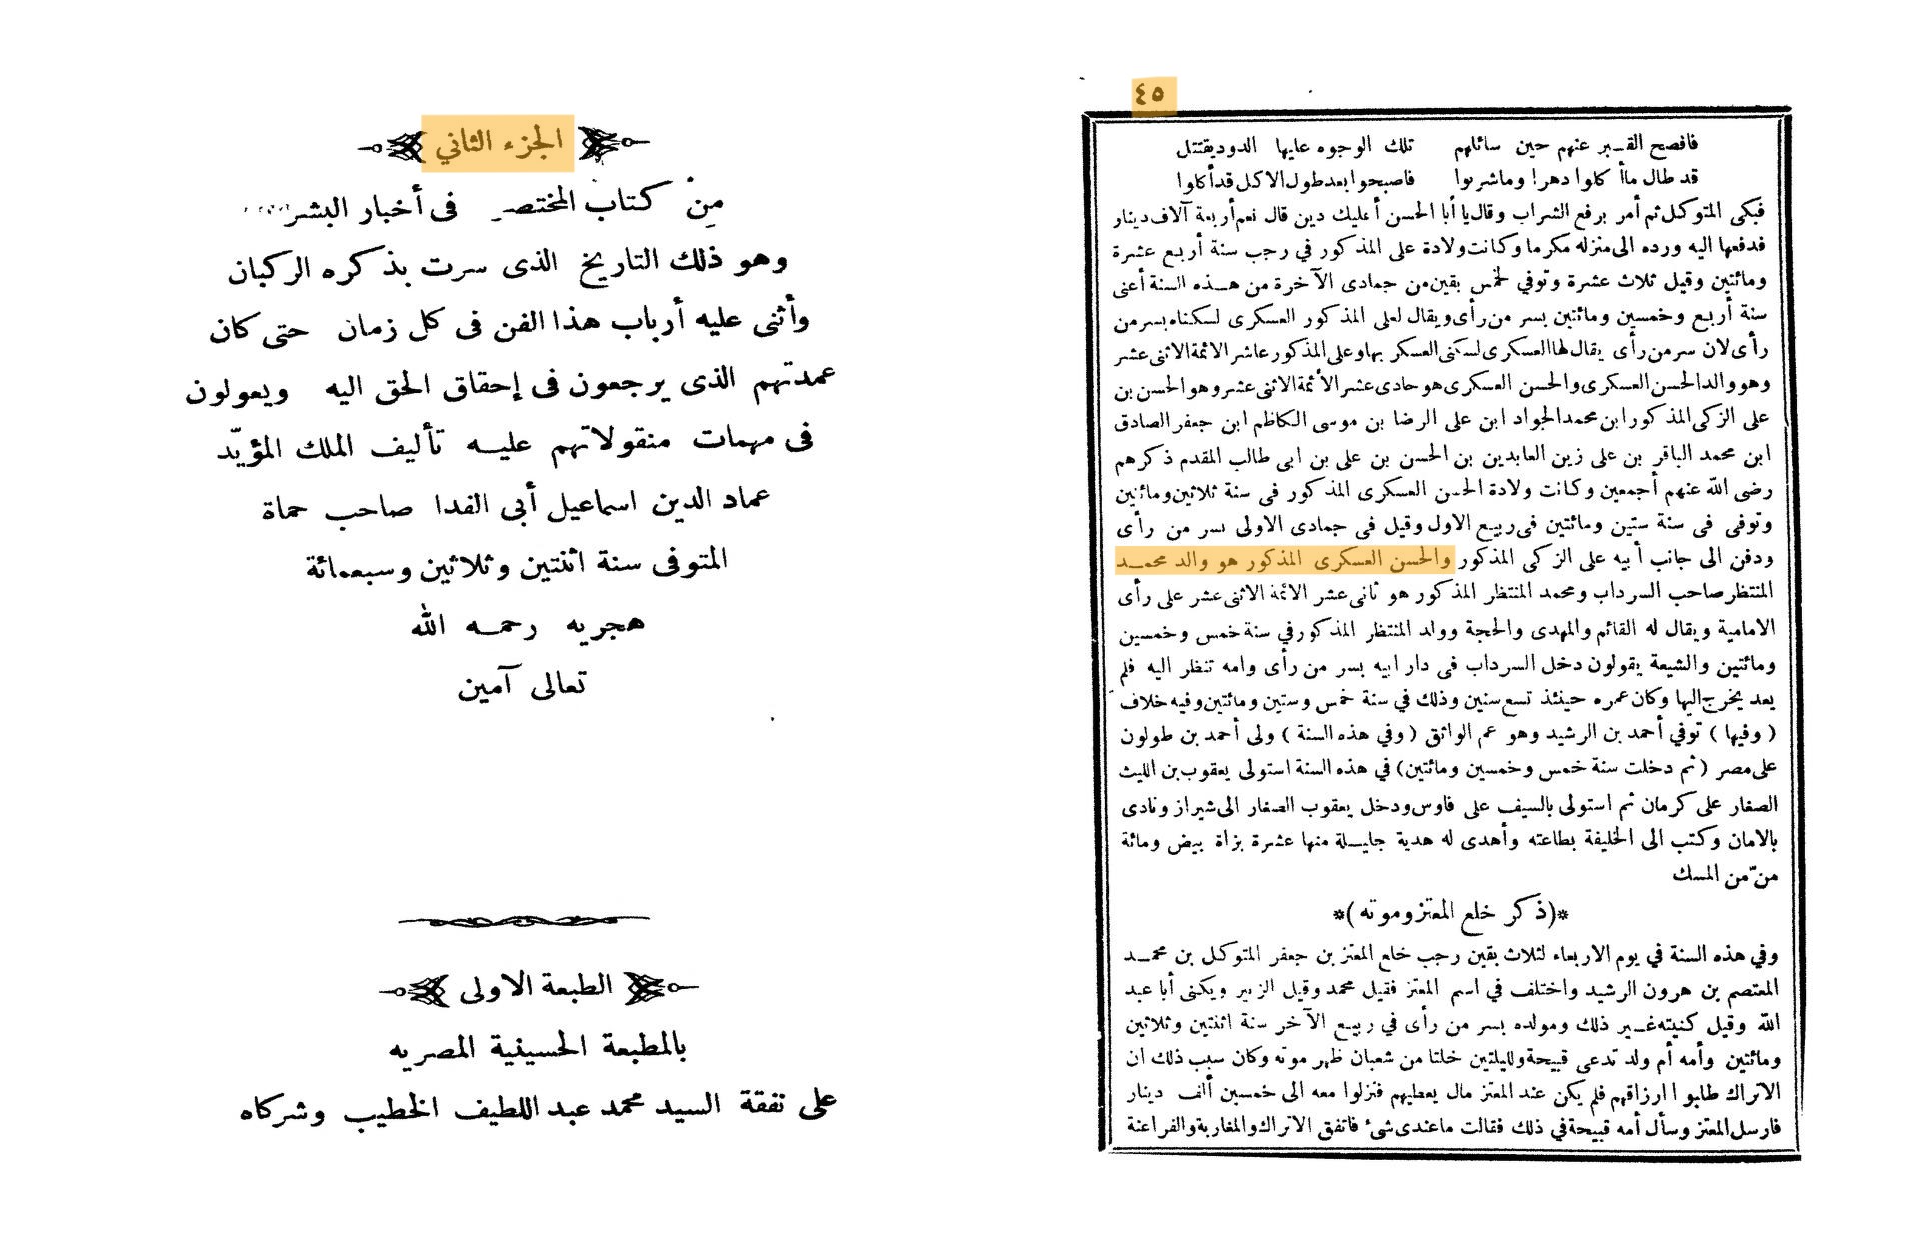 الجزء الثاني
من كتاب المختصر فى أخبار البشر
وهو ذلك التاريخ الذى سرت بذكره الركبان
وأثنى عليه أرباب هذا الفن فى كل زمان حتى كان
عمدتهم الذى يرجعون فى إحقاق الحق اليه ويعولون
فى مهمات منقولاتهم عليه تأليف الملك المؤيّد
عماد الدين اسماعيل أبى الفدا صاحب حماة
المتوفى سنة اثنتين وثلاثين وسبعمائة
هجريه رحمه الله
تعالى آمين
الطبعة الاولى
بالمطبعة الحسينية المصريه
على نفقة السيد محمد عبد اللطيف الخطيب وشركاه
٤٥
فافصح القبر عنهم حين سائلهم تلك الوجوه عليها الدود يقتتل
قد طال ماأ كلوا دهرا وماشربوا فاصبحوا بعد طول الاكل قد أكلوا
فبكى المتوكل ثم أمر برفع الشراب وقال يا أبا الحسن أعليك دين قال نعم أربعة آلاف دينار
فدفعها اليه ورده الى منزله مكرما وكانت ولادة على المذكور في رجب سنة أربع عشرة
ومائتين وقيل ثلاث عشرة وتوفي لخمس بقين من جمادى الآخرة من هذه السنة أعنى
سنة أربع وخمسين ومائتين بسر من رأى ويقال لعلى المذكور العسكرى لسكناه بسر من
رأى لان سر من رأى يقال لها العسكرى لسكنى العسكر بها وعلى المذكور عاشر الائمة الاثنى عشر
وهو والد الحسن العسكرى والحسن العسكرى هو حادى عشر الأئمة الاثنى عشر وهو الحسن بن
على الزكى المذكور ابن محمد الجواد ابن على الرضا بن موسى الكاظم ابن جعفر الصادق
ابن محمد الباقر بن على زين العابدين بن الحسن بن على بن ابى طالب المقدم ذكرهم
رضى الله عنهم أجمعين وكانت ولادة الحسن العسكرى المذكور فى سنة ثلاثين ومائتين
وتوفى فى سنة ستين ومائتين فى ربيع الاول وقيل فى جمادى الاولى بسر من رأى
ودفن الى جانب أبيه على الزكى المذكور والحسن العسكرى المذكور هو والد محمد
المنتظر صاحب السرداب ومحمد المنتظر المذكور هو ثانى عشر الائمة الاثنى عشر على رأى
الامامية ويقال له القائم والمهدى والحجة وولد المنتظر المذكور في سنة خمس وخمسين
ومائتين والشيعة يقولون دخل السرداب فى دار ابيه بسر من رأى وامه تنظر اليه فلم
يعد يخرج اليها وكان عمره حينئذ تسع سنين وذلك في سنة خمس وستين ومائتين وفيه خلاف
( وفيها ) توفي أحمد بن الرشيد وهو عم الواثق ( وفي هذه السنة ) ولى أحمد بن طولون
على مصر ( ثم دخلت سنة خمس وخمسين ومائتين) في هذه السنة استولى يعقوب بن الليث
الصفار على كرمان ثم استولى بالسيف على فاوس ودخل يعقوب الصفار الى شيراز ونادى
بالامان وكتب الى الخليفة بطاعته وأهدى له هدية جليلة منها عشرة بزاة بيض ومائة
منّ من المسك
*(ذكر خلع المعتز وموته)*
وفي هذه السنة في يوم الاربعاء لثلاث بقين رجب خلع المعتز بن جعفر المتوكل بن محمد
المعتصم بن هرون الرشيد واختلف في اسم المعتز فقيل محمد وقيل الزبير ويكنى أبا عبد
الله وقيل كنيته غير ذلك ومولده بسر من رأى في ربيع الآخر سنة اثنتين وثلاثين
ومائتين وأمه أم ولد تدعى قبيحة ولليلتين خلتا من شعبان ظهر موته وكان سبب ذلك ان
الاتراك طلبوا ارزاقهم فلم يكن عند المعتز مال يعطيهم فنزلوا معه الى خمسين ألف دينار
فارسل المعتز وسأل أمه قبيحة في ذلك فقالت ماعندى شئ فاتفق الاتراك والمغاربة والفراعنة